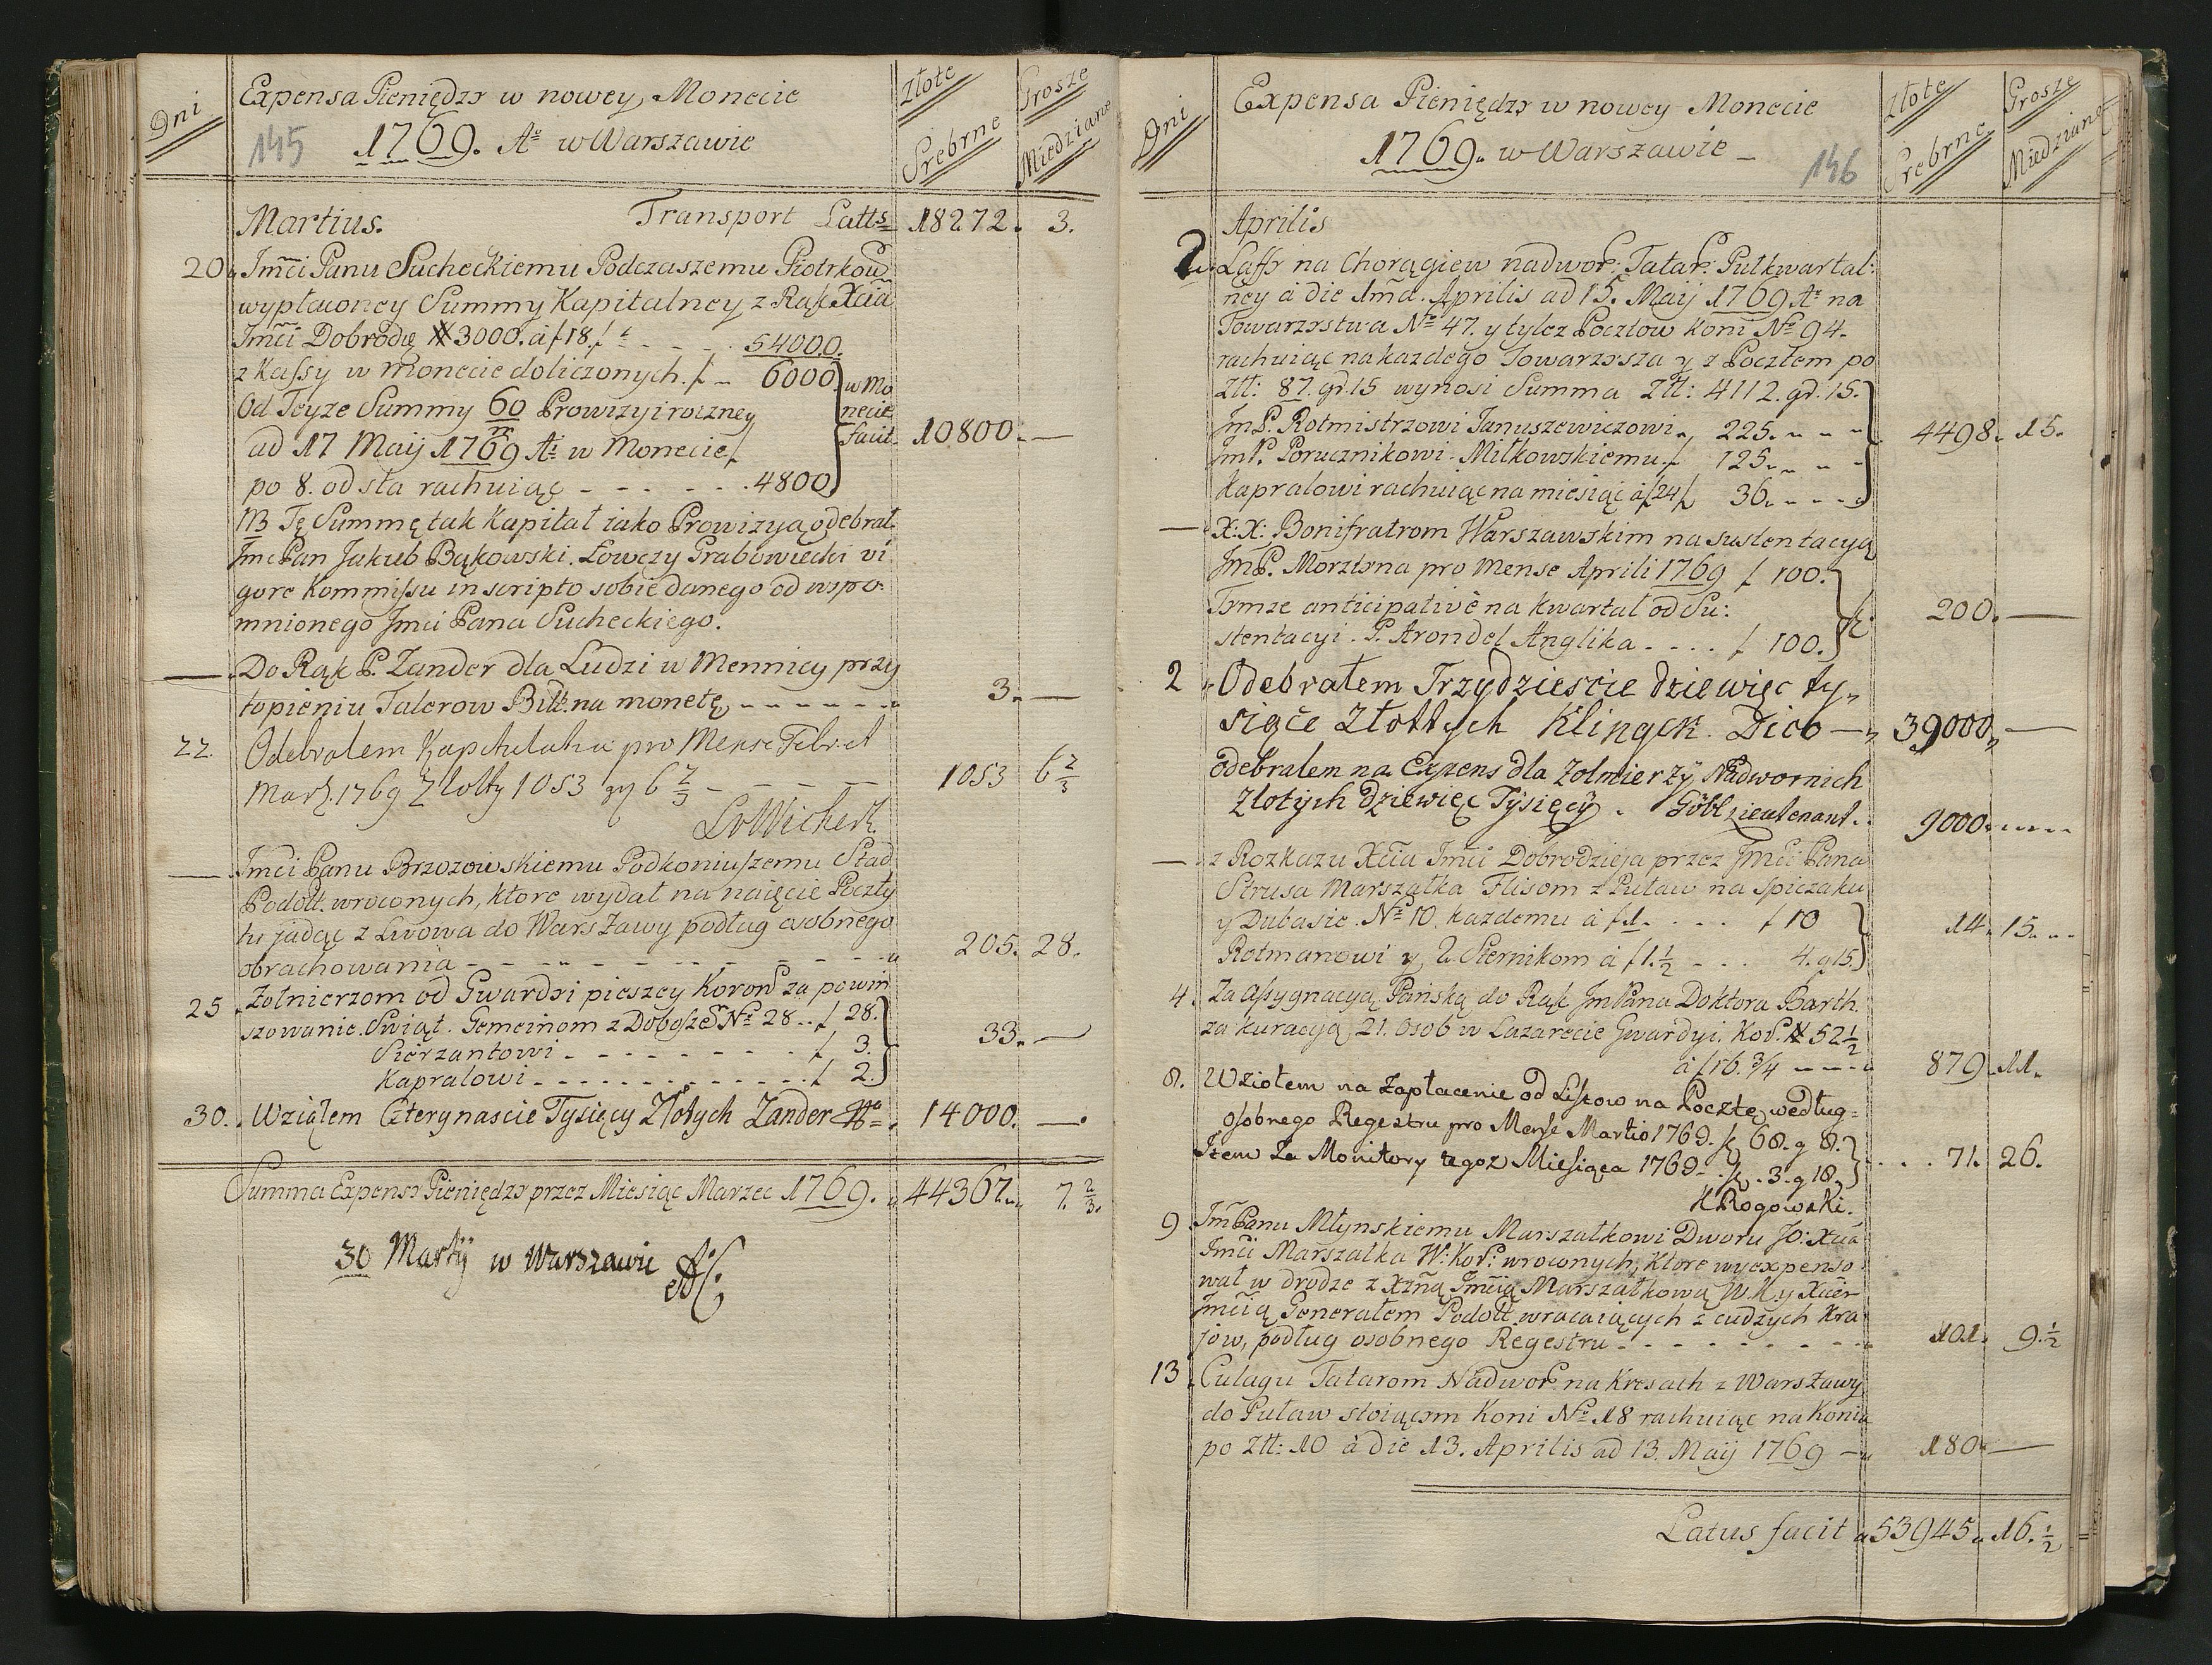 Dni
Expensa Pieniędzy w nowey Monecie
145 1769. Aº w Warszawie
Złote Srebrne
Grosze Miedziane
Martius. Transport Latts 18272. 3.
20. Jmci Panu Sucheckiemu Podczaszemu Piotrkow
wypłaconey Summy Kapitalney z Rąk Xcia
Jmci Dobrodz 3000. à f 18. f 54000.
z Kassy w Monecie doliczonych. f 6000 w Mo
Od Teyze Summy 60 Prowizyi roczney necie
ad 17 Maij 1769 Aº w Monecie f facit 10800. —
po 8. od sta rachuiąc - - - - - 4800
NB Tę Summę tak Kapitał iako Prowizyą odebrał
Jmc Pan Jakub Bąkowski Łowczy Grabowiecki vi
gore Kommissu in scripto sobie danego od wspo
mnionego Jmci Pana Sucheckiego.
— Do Rąk P. Zander dla Ludzi w Mennicy przy
topieniu Talerow Bitt. na monetę - - - - - - 3. —
22. Odebrałem Kapitulatia pro Mense Febr. et
Mart. 1769 Zlotty 1053 gr 6 2/3 - - - - 1053 6 2/3
LvWickert
— Jmci Panu Brzozowskiemu Podkoniuszemu Stad
Podoll. wroconych, ktore wydał na naięcie Poczty
tu jadąc z Lwowa do Warszawy podług osobnego
obrachowania - - - - - - - - - - 205. 28.
25. Żołnierzom od Gwardyi pieszey Koron za powin
szowanie Swiąt. Gemeinom z Dobosze Nº 28. . f 28.
Sierzantowi - - - - - - - f 3. 33. —
Kapralowi - - - - - - - - f 2.
30. Wziąłem Czterynascie Tysięcy Złotych Zander 14000. —
Summa Expensy Pieniędzy przez Miesiąc Marzec 1769. 44367. 7. 2/3.
30 Martij w Warszawie AC.
Dni
Expensa Pieniędzy w nowey Monecie
1769. w Warszawie 146
Złote Srebrne
Grosze Miedziane
Aprilis
2. Laffy na Chorągiew nadwor: Tatar: Pułkwartal:
ney à die 1ma Aprilis ad 15. Maij 1769 Aº na
Towarzystwa Nº 47. y tylez Pocztow Koni Nº 94.
rachuiąc na kazdego Towarzysza y z Pocztem po
Ztt: 87. gr. 15 wynosi Summa Ztt: 4112. gr. 15.
JmP. Rotmistrzowi Januszewiczowi 225. 4498. 15.
JmP. Porucznikowi Miłkowskiemu f 125.
Kapralowi rachuiąc na miesiąc à f 24 f 36.
— X:X: Bonifratrom Warszawskim na sustentacyą
JmP. Morztyna pro Mense Aprili 1769 f 100.
Tymze anticipativè na Kwartał od Su: 200. —
stentacyi P. Arondel Anglika . . . . f 100.
2 Odebrałem Trzydziescie dziewięc ty
siące Złottych Klingek. Dico — 39000 —
odebralem na Expens dla Zolnierzÿ Nadwornich
Zlotych dziewięc Tysięcÿ. Göbl Lieutenant. . 9000.
— z Rozkazu Xcia Jmci Dobrodzieja przez Jmci Pana
Strusa Marszałka Flisom z Puław na Spiczaku
y Dubasie Nº 10. kazdemu à f 1. . . . f 10 14. 15.
Rotmanowi y 2 Sternikom à f 1. 1/2 - . . 4. g 15.
4. Za Assygnacyą Pańską do Rąk JmPana Doktora Barth.
za kuracyą 21. Osob w Lazarecie Gwardyi. Kor. 52 1/2
à f 16. 3/4 - - - 879. 11.
8. Wziołem na Zapłacenie od Listow na Pocztę według
osobnego Regestru pro Mense Martio 1769. f. 68. g 8.
Item Za Monitory tegoz Miesiąca 1769. f. 3. g 18. . . . . 71. 26.
K Rogowski.
9. JmPanu Młynskiemu Marszałkowi Dworu JO: Xcia
Jmci Marszałka W: Kor: wroconych, ktore wyexpenso
wał w drodze z Xzną Jmcią Marszałkową W.K. y Xciem
Jmcią Generałem Podoll wracaiących z cudzych Kra
jow, podług osobnego Regestru - - - - - - - - 101. 9. 1/2
13. Culagu Tatarom Nadwor: na Kresach z Warszawy
do Puław stoiącym Koni Nº 18 rachuiąc na Konia
po Ztt: 10 à die 13. Aprilis ad 13. Maij 1769 — 180. —
Latus facit 53945. 16. 1/2